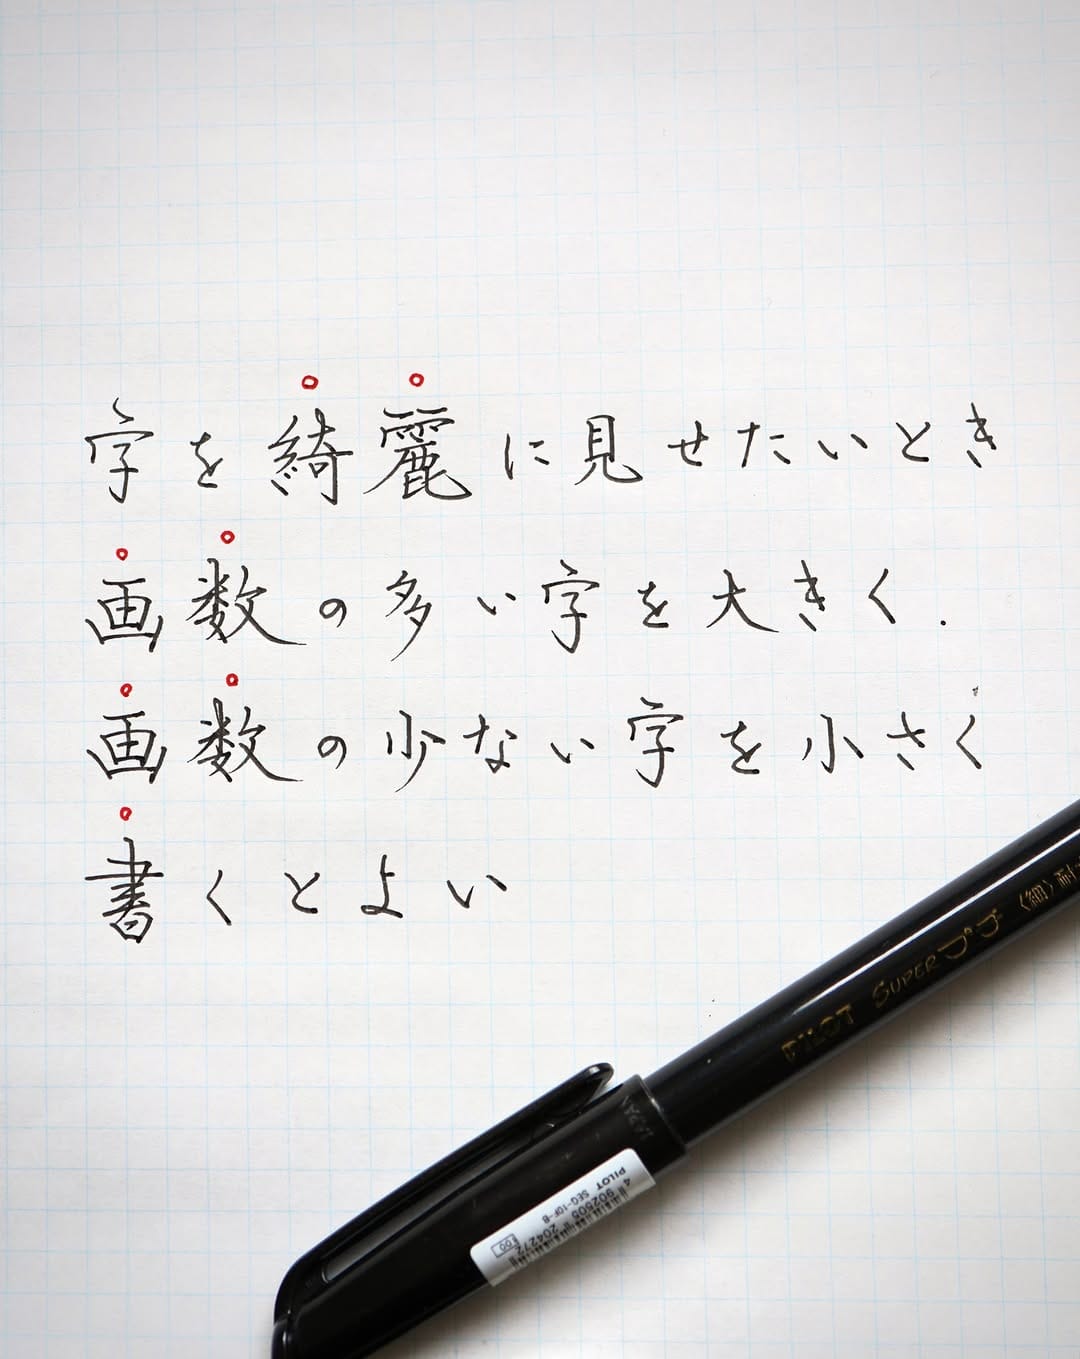 字を綺麗に見せたいとき
画数の多い字を大きく.
画数の少ない字を小さく
書くとよい
PILOT SUPERプチ〈細〉
JAPAN
PILOT SEG-10F-B
4 902505 204272